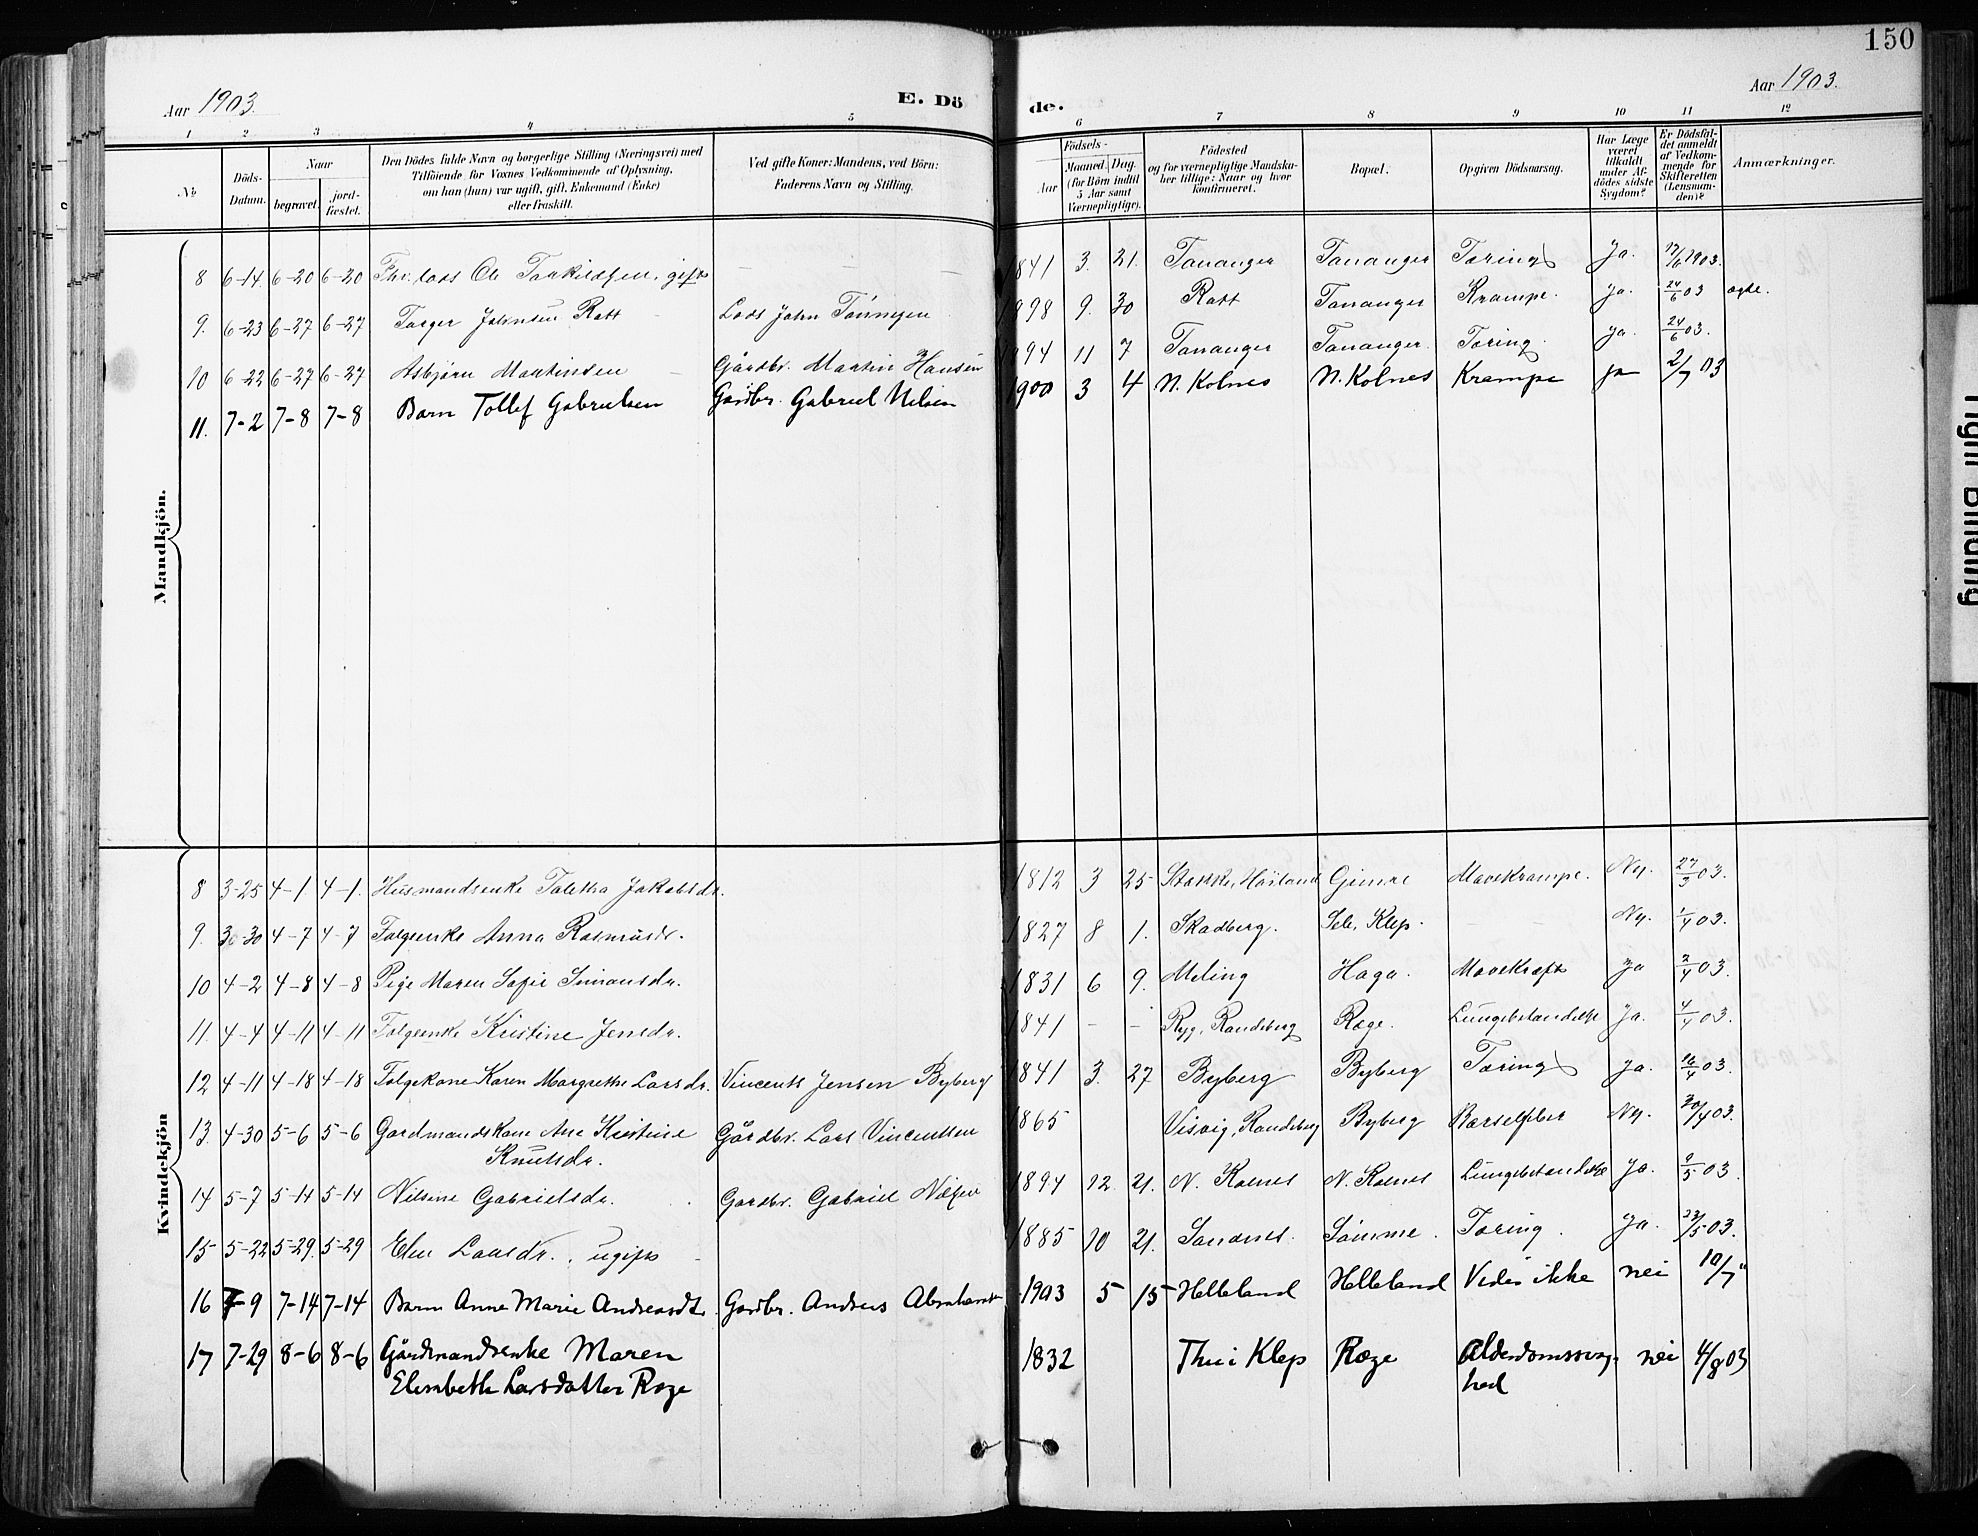 150
Aar 1903.
E. Dö
de.
Aar 1903.
1 2 3 4 5 6 7 8 9 10 11 12
No
Döds-
Datum.
Naar
begravet.
jord-
fæstet.
Den Dödes fulde Navn og borgerlige Stilling (Næringsvei) med
Tilföiende for Voxnes Vedkommende af Oplysning,
om han (hun) var ugift, gift, Enkemand (Enke)
eller fraskilt.
Ved gifte Koner: Mandens, ved Börn:
Faderens Navn og Stilling.
Födsels-
Aar
Maaned.
Dag.
(for Börn indtil
5 Aar samt
Værnepligtige).
Födested
og for værnepligtige Mandska-
ber tillige: Naar og hvor
konfirmeret.
Bopæl.
Opgiven Dödsaarsag.
Har Læge
været
tilkaldt
under Af-
dödes sidste
Sygdom?
Er Dödsfal-
det anmeldt
af Vedkom-
mende for
Skifteretten
(Lensman-
den)?
Anmærkninger.
Mandkjön.
8 6-14 6-20 6-20 Fhv. Lods Ole Torkildsen, gift — — — 1841 3. 21. Tananger Tananger Tæring Ja. 17/6 1903.
9. 6-23 6-27 6-27 Torger Johnsen Rott Lods John Tönnesen 1898 9. 30 Rott Tananger Krampe. Ja. 24/6 03 ægte.
10 6-22 6-27 6-27 Asbjörn Martinsen — Gårdbr. Martin Hansen 1894 11 7 Tananger Tananger. Tæring. Ja. 24/6 03.
11. 7-2 7-8 7-8 Barn Tollef Gabrielsen Gårdbr. Gabriel Nilsen 1900 3 4 N. Kolnes N. Kolnes Krampe ja 2/7 03
Kvindekjön
8 3-25 4-1 4-1. Husmandsenke Taletha Jakobsdr. 1812 3 25 Stokke, Höiland Gimre Mavekrampe. Nei. 27/3 03.
9. 3-30 4-7 4-7 Folgeenke Anna Rasmusdr. 1827 8 1. Skadberg. Sele, Klep. — — Nei. 1/4 03.
10 4-2 4-8 4-8 Pige Maren Sofie Simonsdr. 1831 6 9. Meling Haga. Mavekræft Ja 2/4 03.
11. 4-4 4-11 4-11 Folgeenke Kristine Jensdr. 1841 — — Ryg, Randeberg Ræge. Lungebetændelse Ja. 4/4 03.
12 4-11 4-18 4-18 Folgekone Karen Margrethe Larsdr. Vincents Jensen Byberg 1841 3. 27 Byberg Byberg Tæring Ja. 16/4 03.
13. 4-30 5-6 5-6 Gardmandskone Ane Kirstine Gårdbr. Lars Vincentsen 1865 Visvig, Randeberg Byberg Barselfeber Nei. 30/4 03.
Knutsdr.
14 5-7 5-14 5-14 Nilsine Gabrielsdr. Gardbr. Gabriel Nilsen 1894 12. 21. N. Kolnes N. Kolnes Lungebetændelse Ja. 9/5 03.
15 5-22 5-29. 5-29 Elen Larsdr., ugift — 1885 10 21. Sandnes. Sömme. Tæring. Ja. 23/5 03.
16 7-9 7-14 7-14 Barn Anne Marie Andreasdt. Gardbr. Andreas 1903 5 15 Helleland Helleland Vides ikke nei 10/7 "
17 7-29 8-6 8-6 Gårdmandsenke Maren 1832 Thu i Klep Ræge Alderdomssvag- nei 4/8 03
Elisabeth Larsdatter Ræge hed